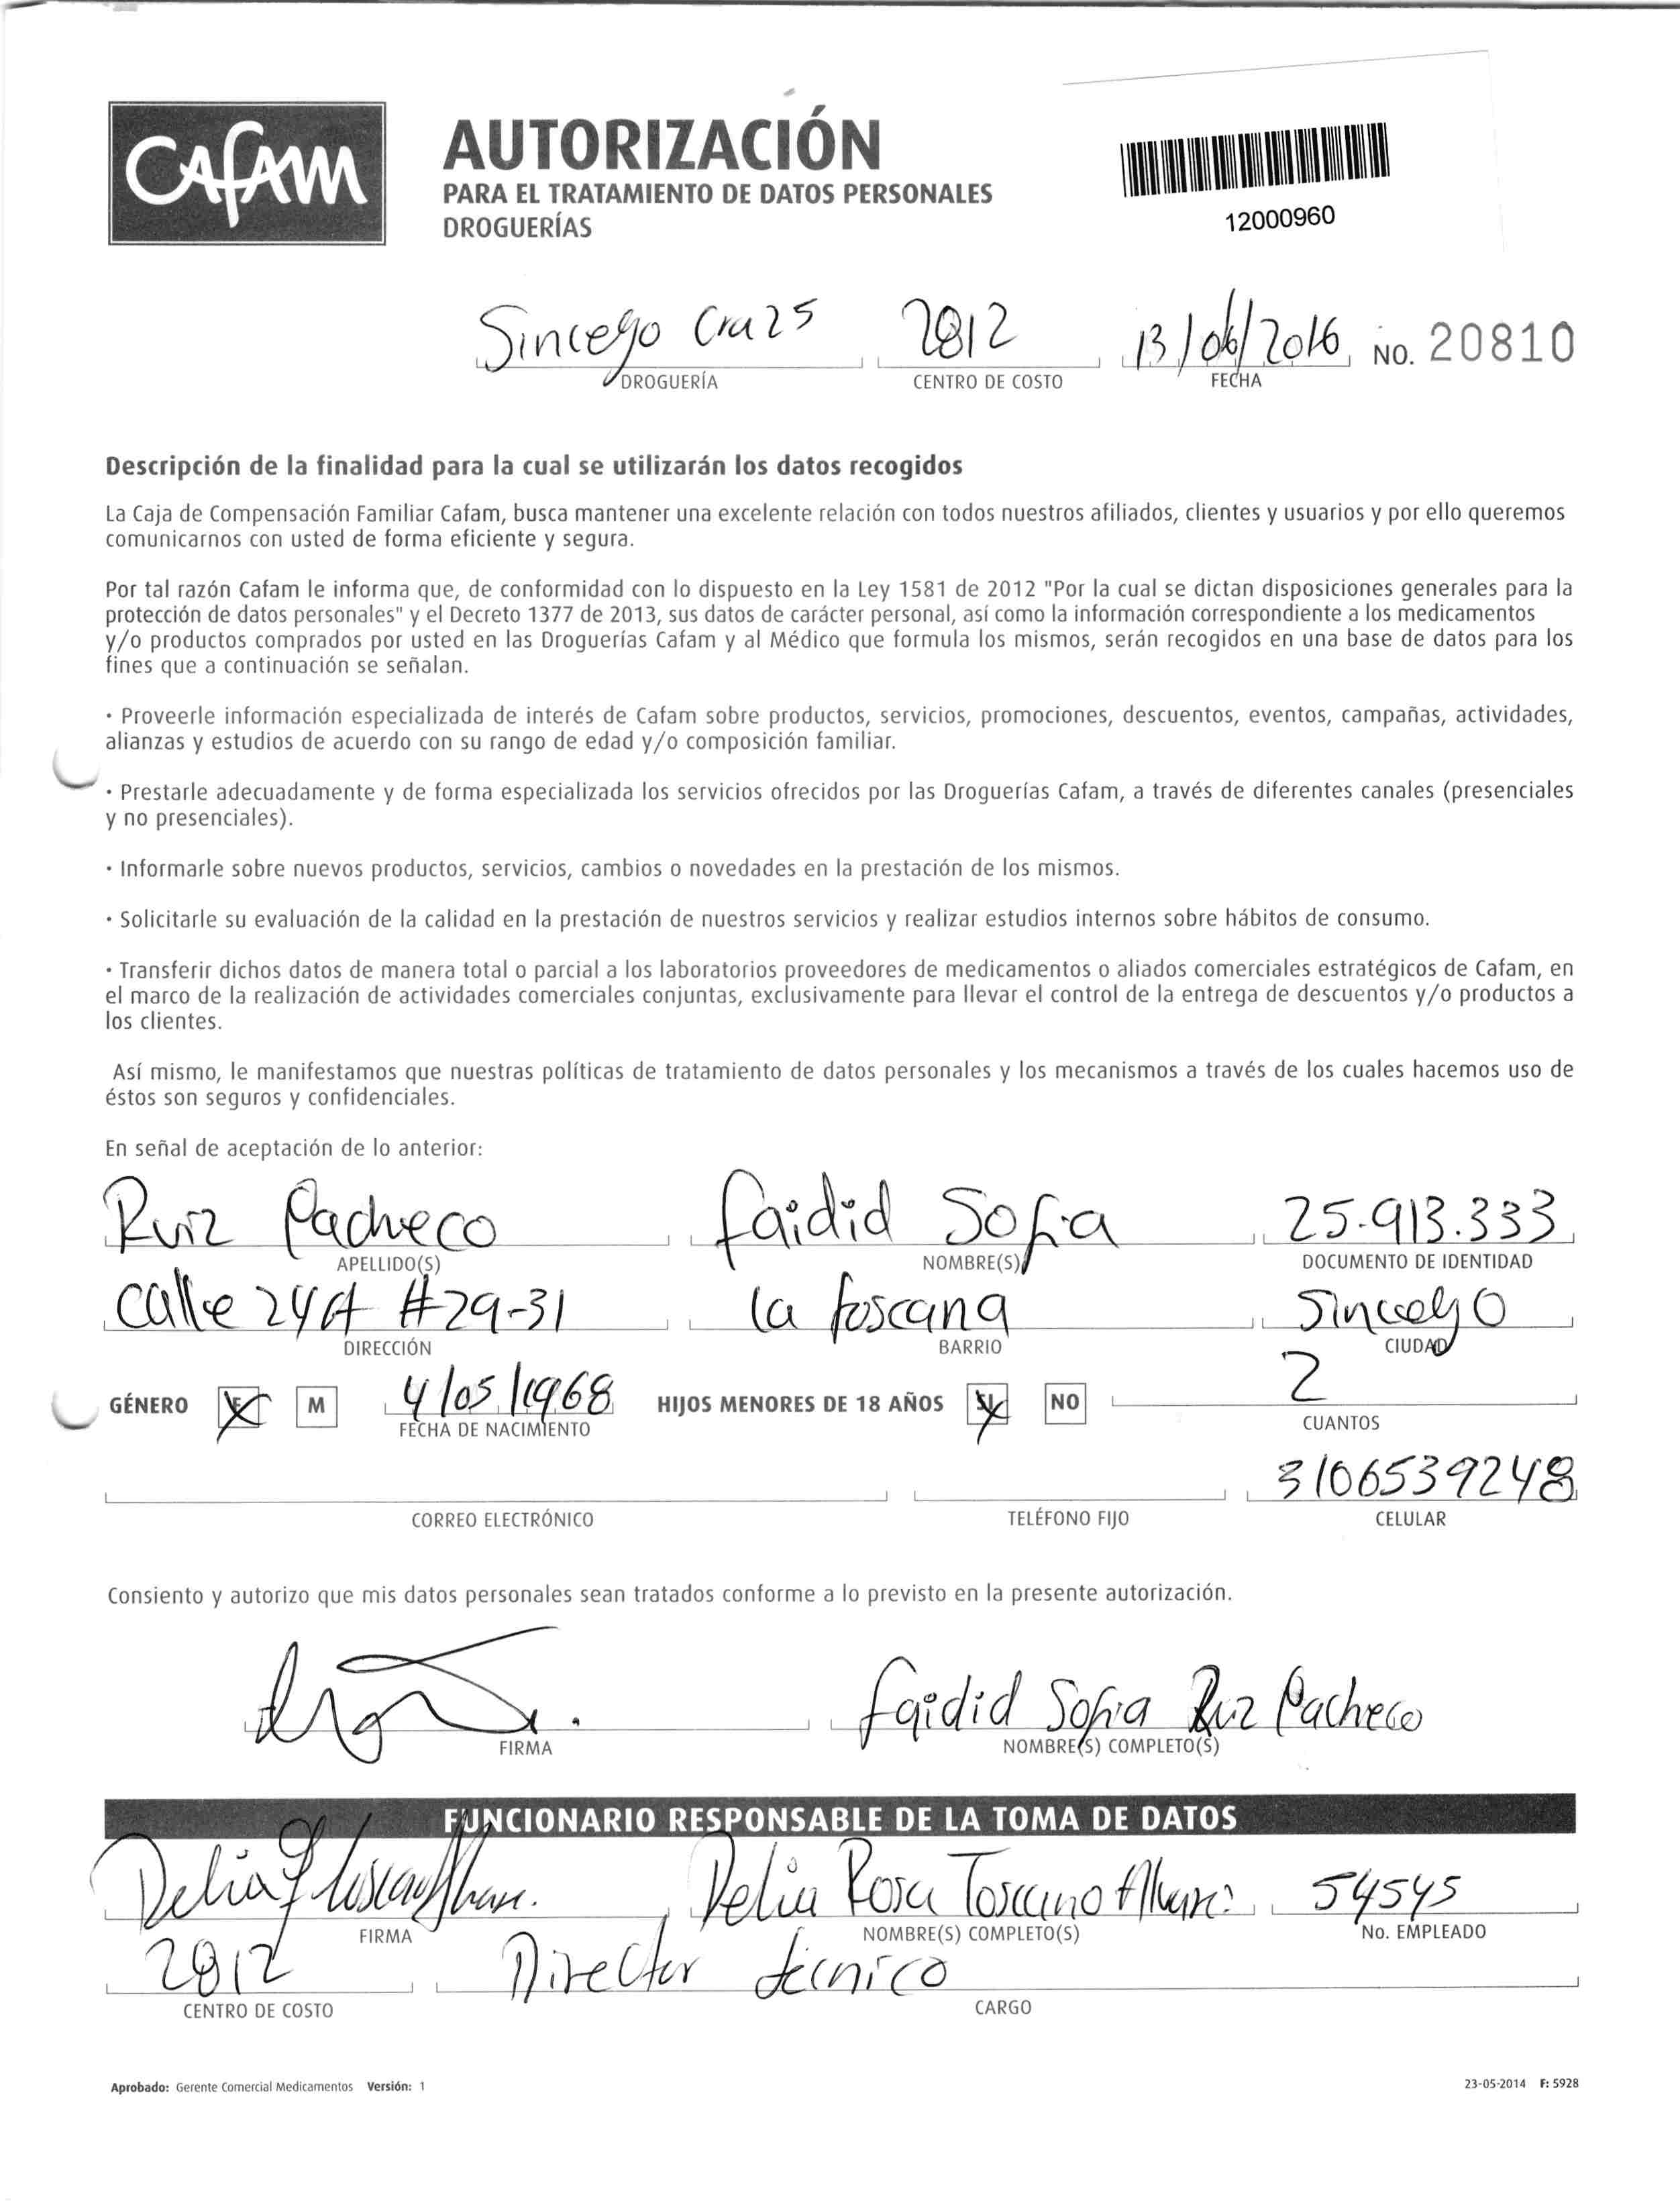 CAFAM
AUTORIZACIÓN
PARA EL TRATAMIENTO DE DATOS PERSONALES
DROGUERÍAS
12000960
Sincelejo Cra 25 2812 13/06/2016 NO. 20810
DROGUERÍA CENTRO DE COSTO FECHA
Descripción de la finalidad para la cual se utilizarán los datos recogidos
La Caja de Compensación Familiar Cafam, busca mantener una excelente relación con todos nuestros afiliados, clientes y usuarios y por ello queremos
comunicarnos con usted de forma eficiente y segura.
Por tal razón Cafam le informa que, de conformidad con lo dispuesto en la Ley 1581 de 2012 "Por la cual se dictan disposiciones generales para la
protección de datos personales" y el Decreto 1377 de 2013, sus datos de carácter personal, así como la información correspondiente a los medicamentos
y/o productos comprados por usted en las Droguerías Cafam y al Médico que formula los mismos, serán recogidos en una base de datos para los
fines que a continuación se señalan.
· Proveerle información especializada de interés de Cafam sobre productos, servicios, promociones, descuentos, eventos, campañas, actividades,
alianzas y estudios de acuerdo con su rango de edad y/o composición familiar.
· Prestarle adecuadamente y de forma especializada los servicios ofrecidos por las Droguerías Cafam, a través de diferentes canales (presenciales
y no presenciales).
· Informarle sobre nuevos productos, servicios, cambios o novedades en la prestación de los mismos.
· Solicitarle su evaluación de la calidad en la prestación de nuestros servicios y realizar estudios internos sobre hábitos de consumo.
· Transferir dichos datos de manera total o parcial a los laboratorios proveedores de medicamentos o aliados comerciales estratégicos de Cafam, en
el marco de la realización de actividades comerciales conjuntas, exclusivamente para llevar el control de la entrega de descuentos y/o productos a
los clientes.
Así mismo, le manifestamos que nuestras políticas de tratamiento de datos personales y los mecanismos a través de los cuales hacemos uso de
éstos son seguros y confidenciales.
En señal de aceptación de lo anterior:
Ruiz Pacheco faidid Sofia 25.913.333
APELLIDO(S) NOMBRE(S) DOCUMENTO DE IDENTIDAD
calle 24A #29-31 la toscana Sincelejo
DIRECCIÓN BARRIO CIUDAD
GÉNERO F M 4/05/1968 HIJOS MENORES DE 18 AÑOS SI NO 2
FECHA DE NACIMIENTO CUANTOS
3106539248
CORREO ELECTRÓNICO TELÉFONO FIJO CELULAR
Consiento y autorizo que mis datos personales sean tratados conforme a lo previsto en la presente autorización.
faidid Sofia Ruiz Pacheco
FIRMA NOMBRE(S) COMPLETO(S)
FUNCIONARIO RESPONSABLE DE LA TOMA DE DATOS
Delia Delia Rosa Toscano 54545
FIRMA NOMBRE(S) COMPLETO(S) No. EMPLEADO
2812 Director técnico
CENTRO DE COSTO CARGO
Aprobado: Gerente Comercial Medicamentos Versión: 1 23-05-2014 F: 5928